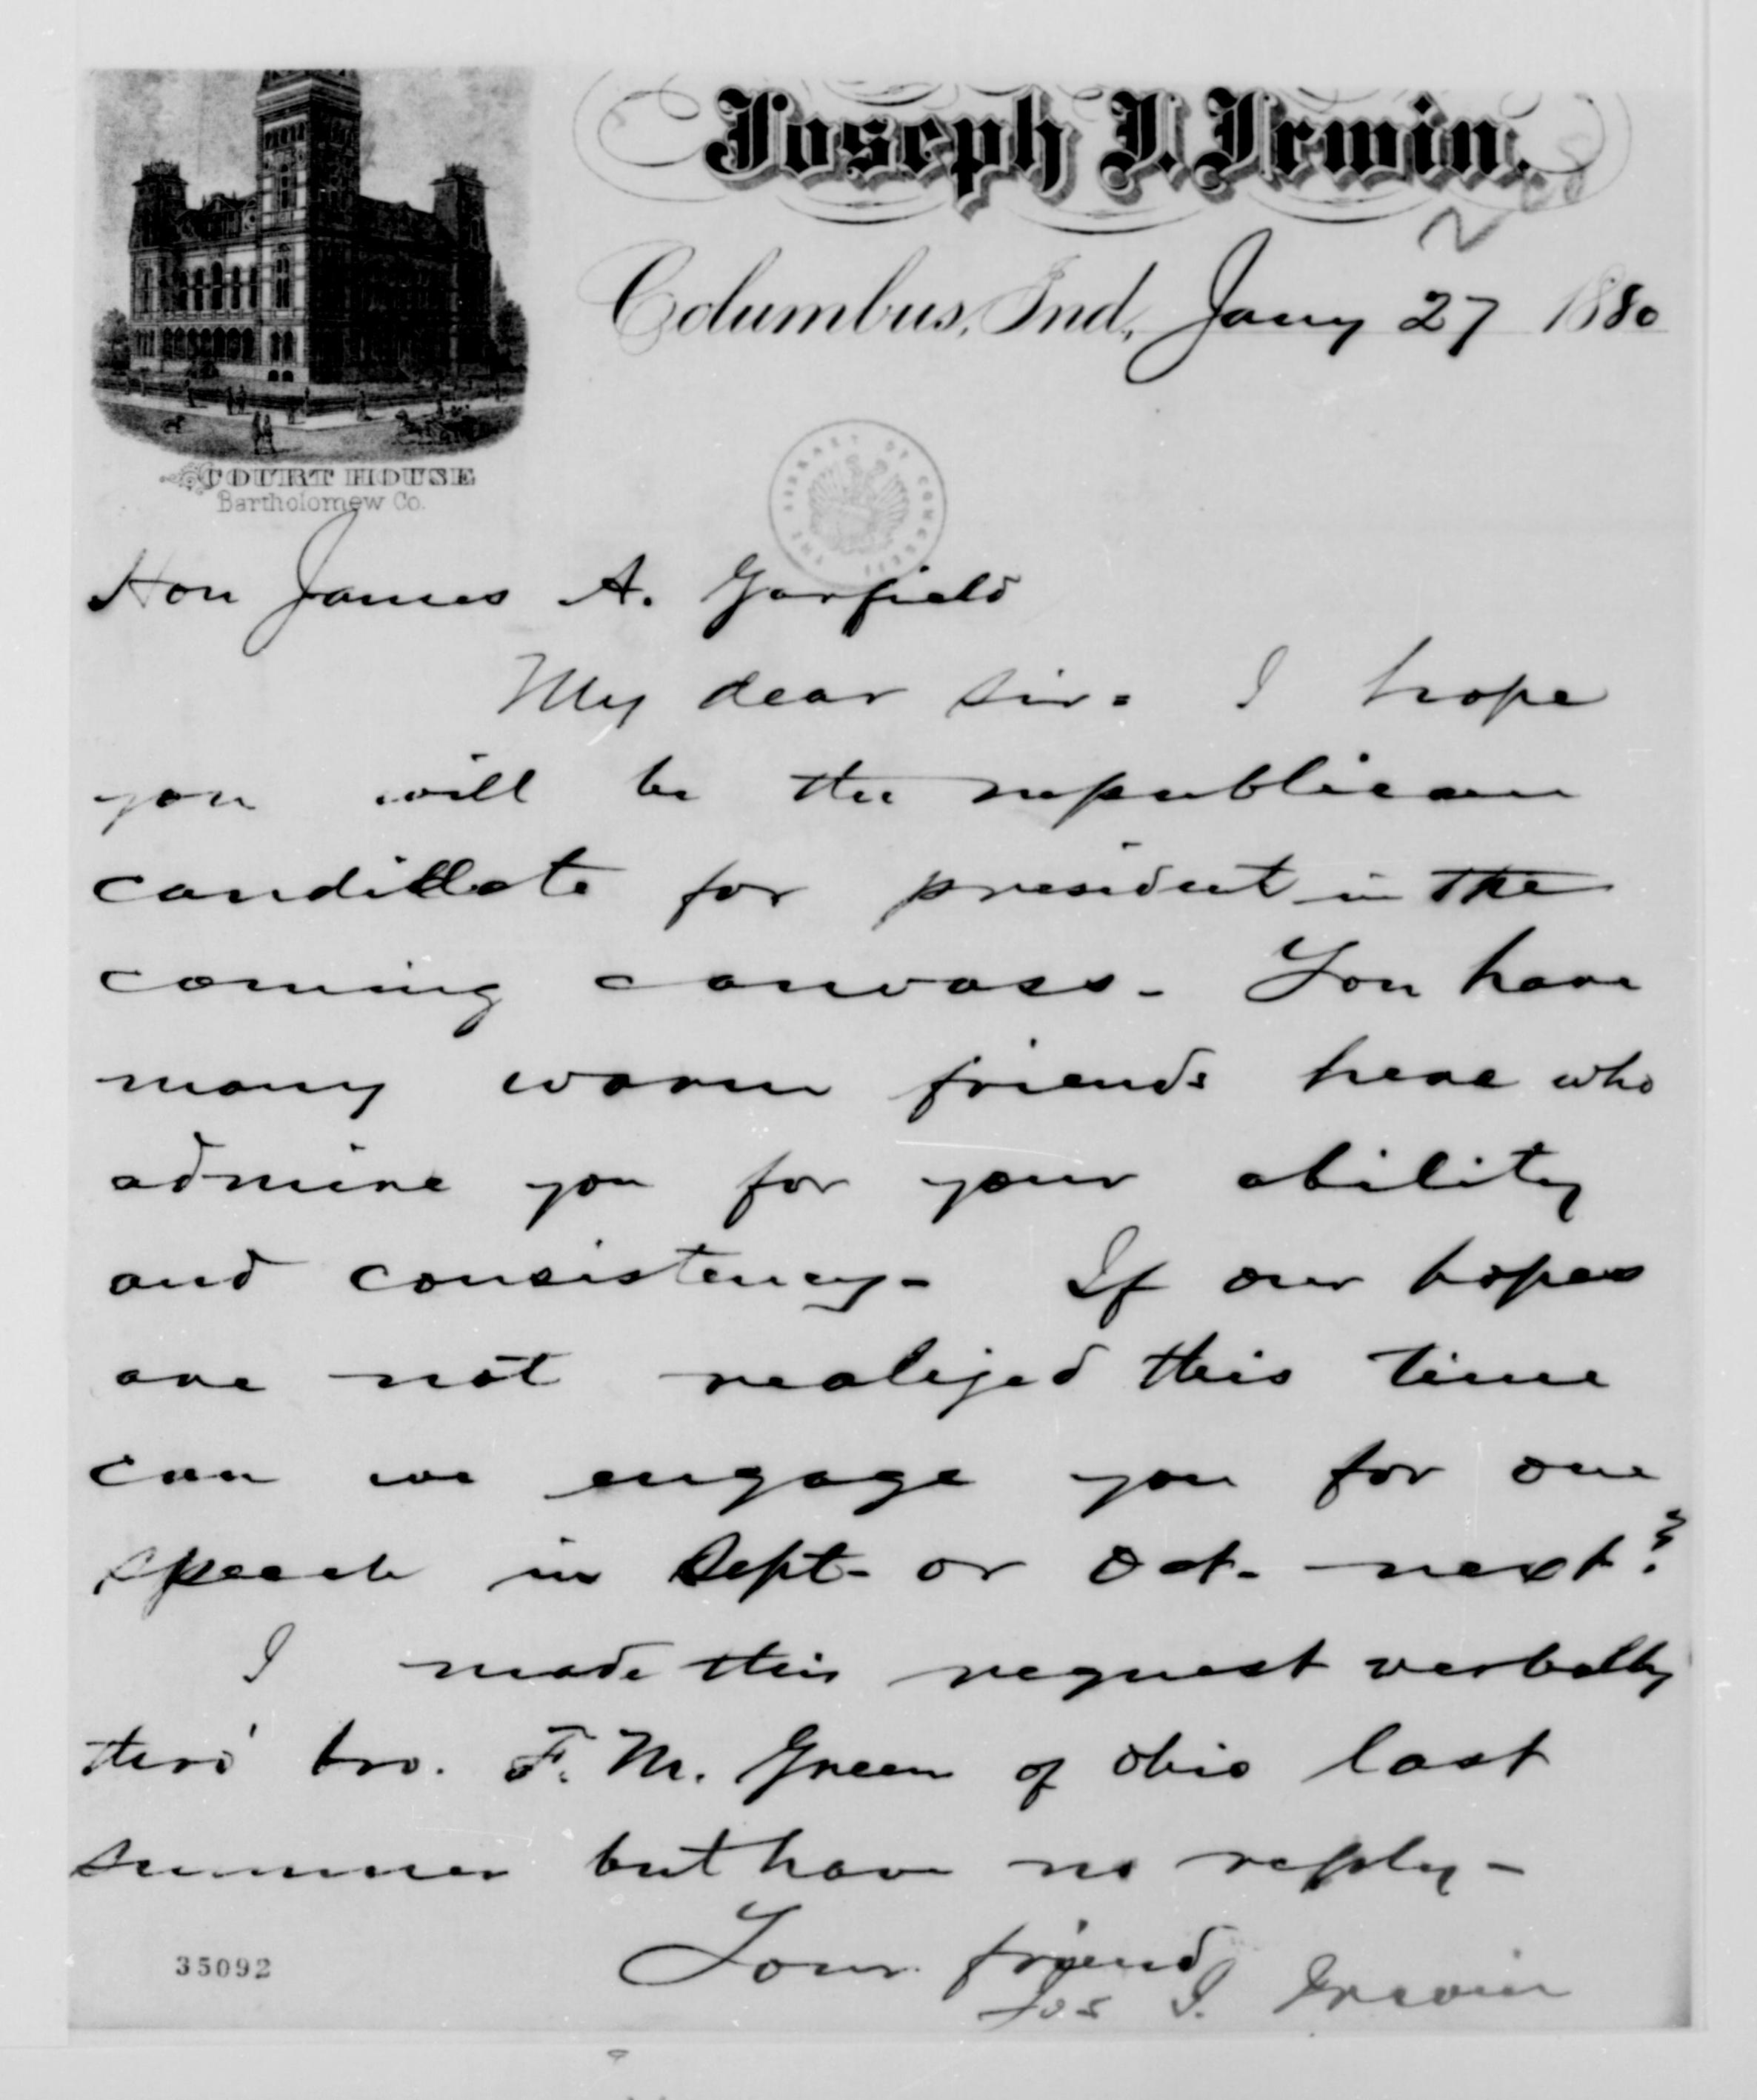 Joseph I. Irwin.
Columbus, Ind., Jany 27 1880
COURT HOUSE
Bartholomew Co.
THE LIBRARY OF CONGRESS
Hon James A. Garfield
My dear Sir= I hope
you will be the republican
candidate for president in the
coming canvass- You have
many warm friends here who
admire you for your ability
and consistency- If our hopes
are not realized this time
can we engage you for one
speech in Sept- or Oct- next?
I made this request verbally
thro' bro. F. M. Green of Ohio last
summer but have no reply-
Your friend
Jos I. Irwin
35092